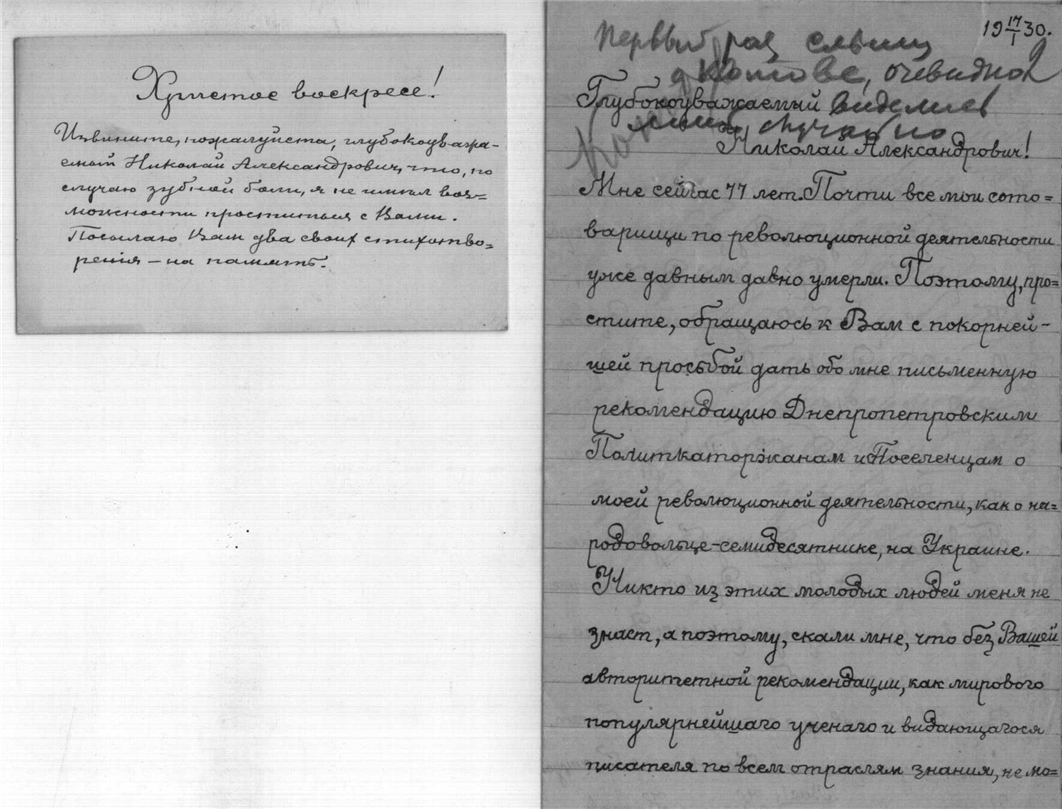 Христос воскресе!
Извините, пожалуйста, глубокоуважа-
емый Николай Александрович, что, по
случаю зубной боли, я не имел воз=
можности проститься с Вами.
Посылаю Вам два своих стихотво=
рения – на память.
19 17/I 30.
Первый раз слышу
о Котове, очевидно
виделись
случайно
Глубокоуважаемый
Николай Александрович!
Мне сейчас 77 лет. Почти все мои сото-
варищи по революционной деятельности
уже давным давно умерли. Поэтому, про=
стите, обращаюсь к Вам с покорней-
шей просьбой дать обо мне письменную
рекомендацию Днепропетровским
Политкаторжанам и Поселенцам о
моей революционной деятельности, как о на=
родовольце-семидесятнике, на Украине.
Никто из этих молодых людей меня не
знает, а поэтому, скали мне, что без Вашей
авторитетной рекомендации, как мирового
популярнейшаго ученаго и видающагося
писателя по всем отраслям знания, не мо-